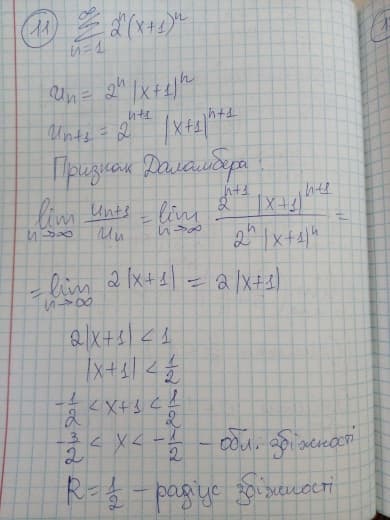 11 ∞ Σ n=1 2^n (x+1)^n
u_n = 2^n |x+1|^n
u_{n+1} = 2^{n+1} |x+1|^{n+1}
Признак Даламбера:
lim n→∞ u_{n+1}/u_n = lim n→∞ 2^{n+1} |x+1|^{n+1} / 2^n |x+1|^n =
= lim n→∞ 2|x+1| = 2|x+1|
2|x+1| < 1
|x+1| < 1/2
-1/2 < x+1 < 1/2
-3/2 < x < -1/2 – обл. збіжності
R = 1/2 – радіус збіжності